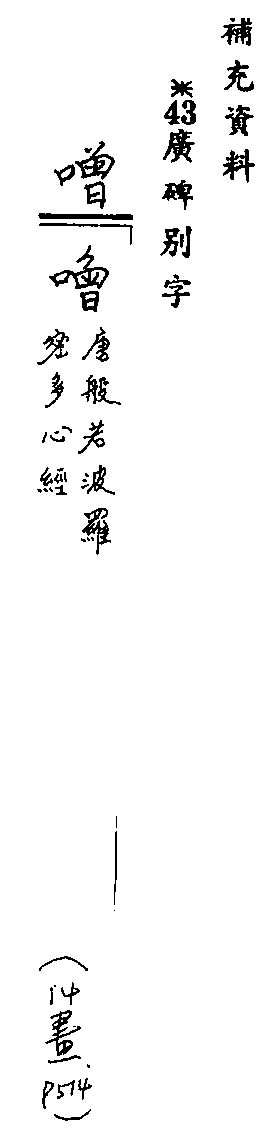 補充資料
※43廣碑別字
噌
噜
唐般若波羅
密多心經
(14畫、P574)